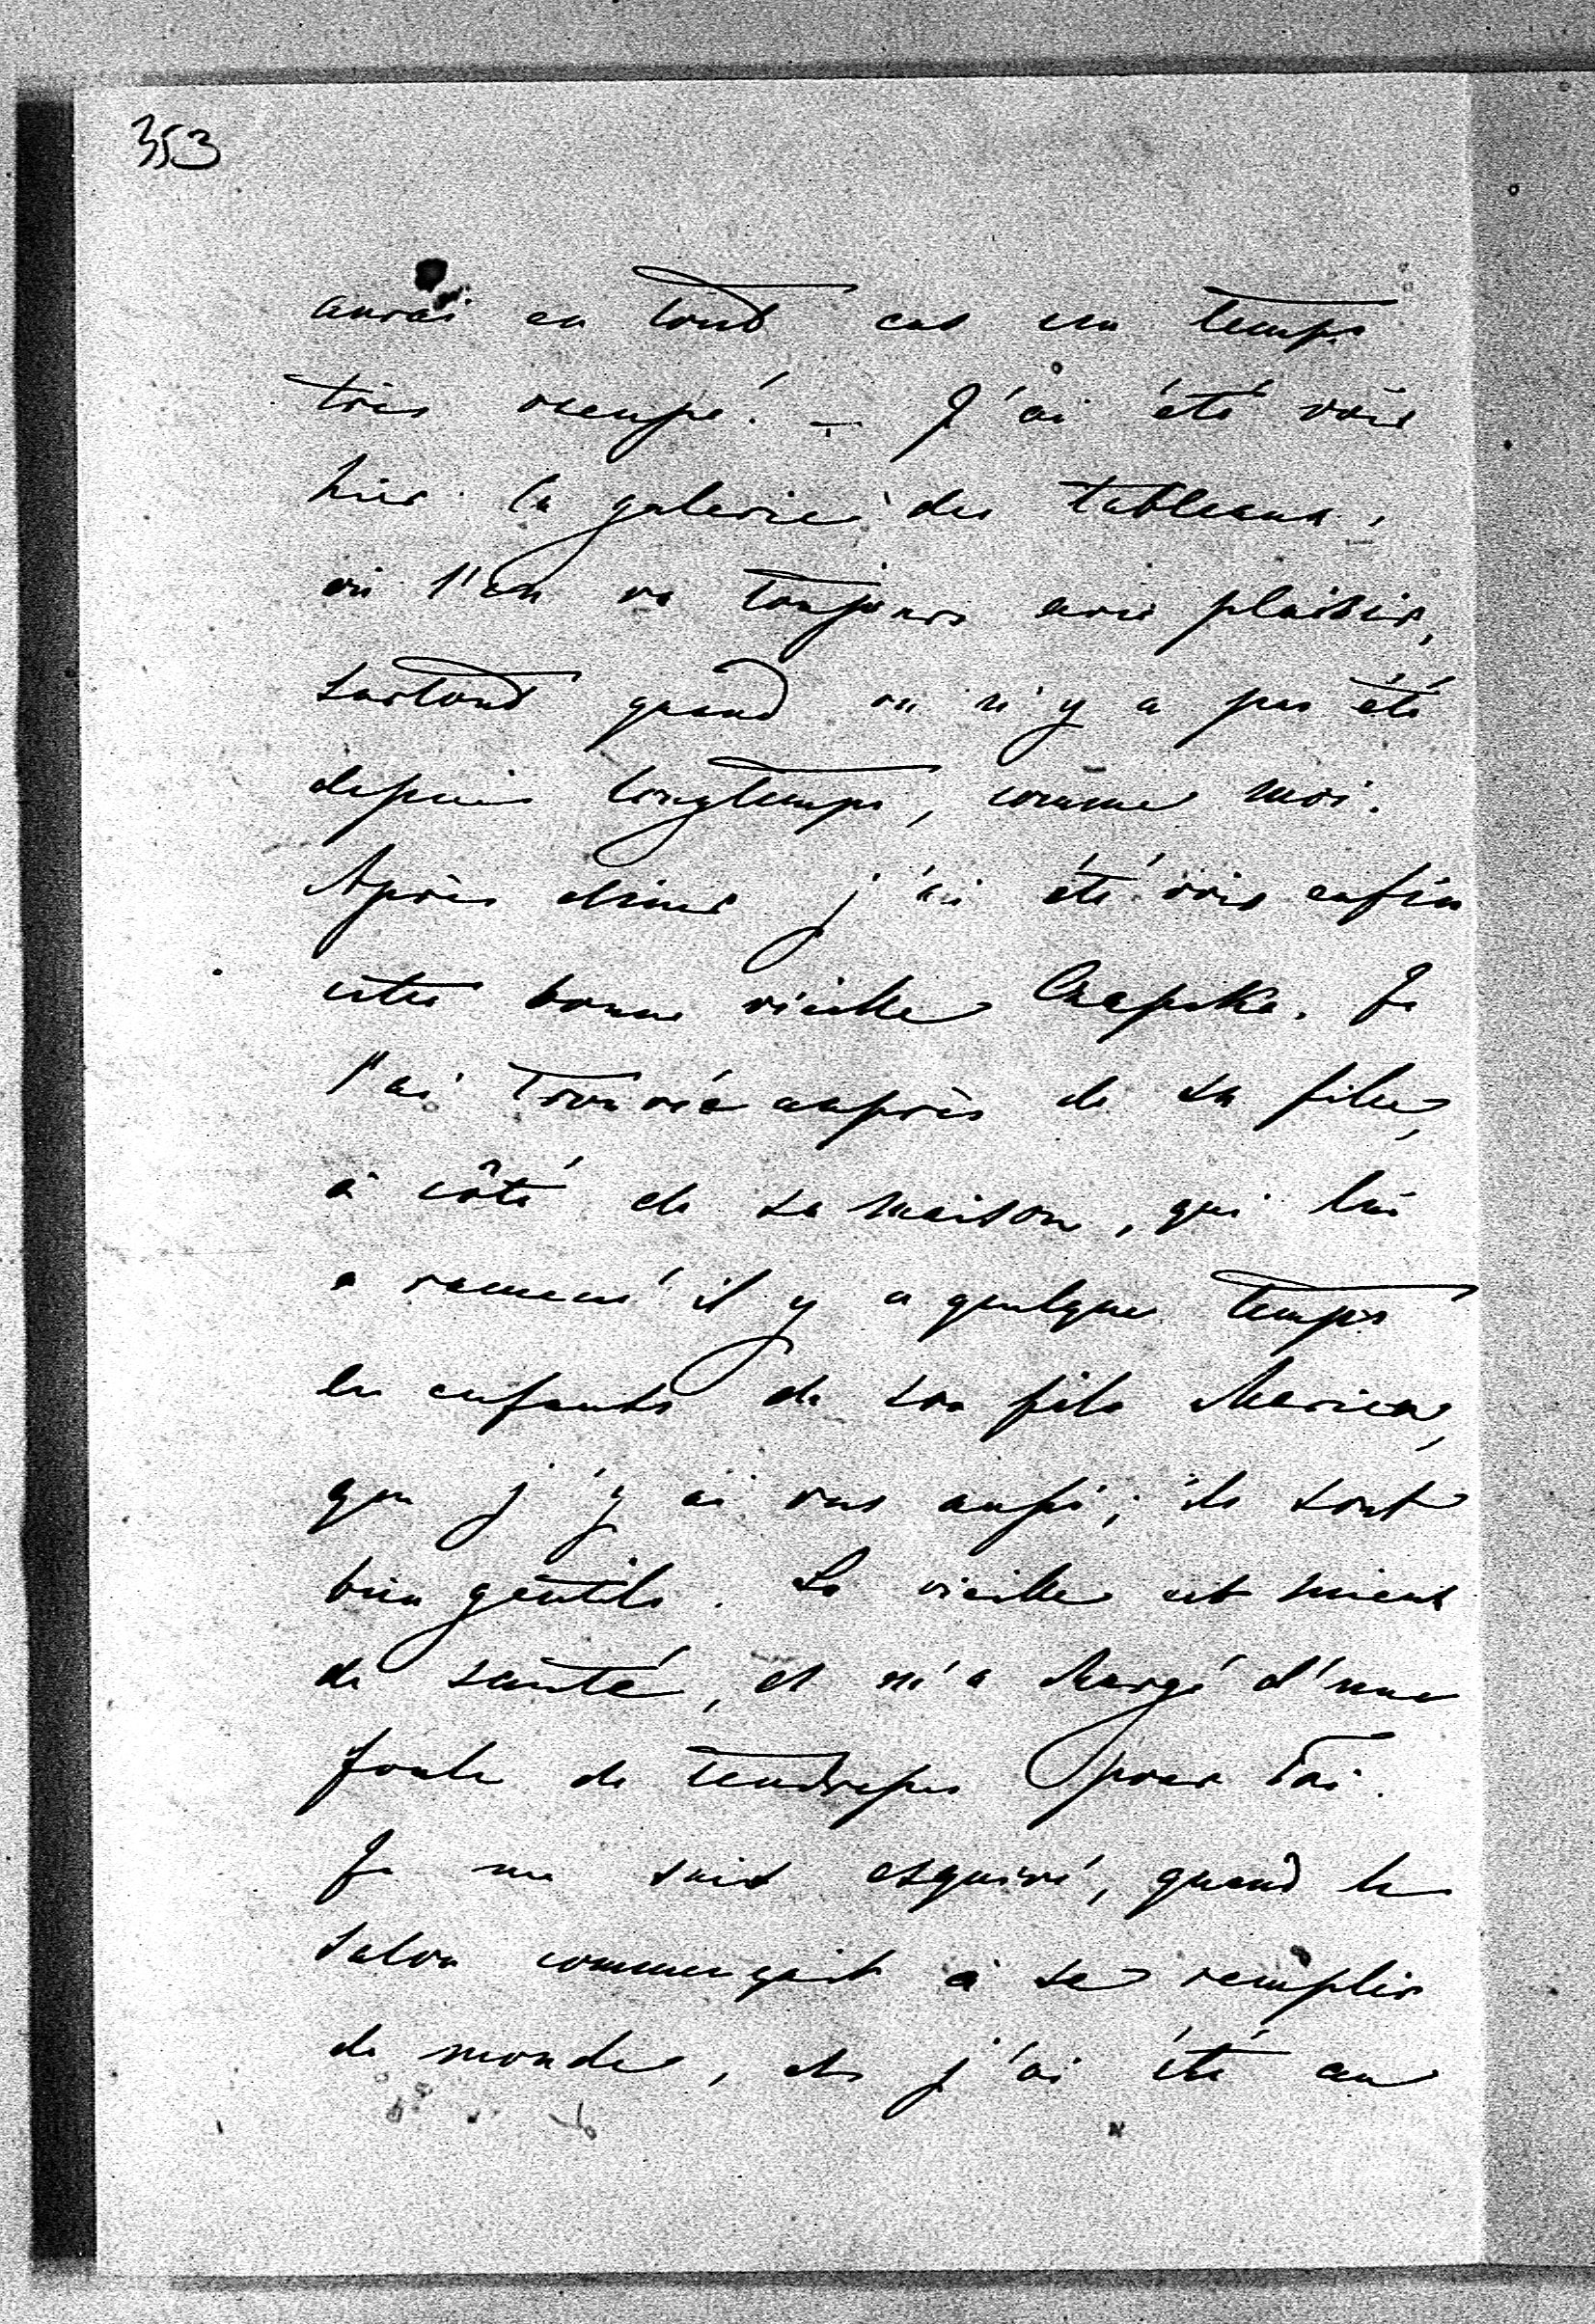 353
aurai en tout cas un temps
très occupé. – J'ai été voir
hier la galerie des tableaux,
où l'on va toujours avec plaisir,
surtout quand on n'y a pas été
depuis longtemps, comme moi.
Après dîner j'ai été voir enfin
cette bonne vieille Czapska. Je
l'ai trouvée auprès de sa fille,
à côté de sa maison, qui lui
a ramené il y a quelque temps
les enfants de son fils
que j'y ai vus aussi; ils sont
bien gentils. La vieille est mieux
de santé, et m'a chargé d'une
foule de tendresses pour Toi.
Je me suis esquivé, quand le
salon commençait à se remplir
de monde, et j'ai été au